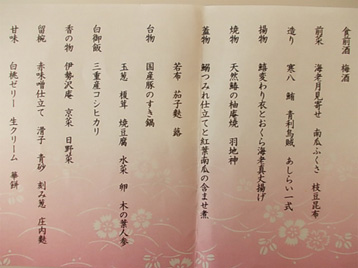 食前酒 梅酒
前菜 海老月見寄せ 南瓜ふくさ 枝豆昆布
造り 寒八 鮪 青利烏賊 あしらい一式
揚物 鱚変わり衣とおくら海老真丈揚げ
焼物 天然鰤の柚庵焼 羽地神
蓋物 鰯つみれ仕立てと紅葉南瓜の含ませ煮
若布 茄子麩 蕗
台物 国産豚のすき鍋
玉葱 榎茸 焼豆腐 水菜 卵 木の葉人参
白御飯 三重産コシヒカリ
香の物 伊勢沢庵 京菜 日野菜
留椀 赤味噌仕立て 滑子 青砂 刻み葱 庄内麩
甘味 白桃ゼリー 生クリーム 華餅